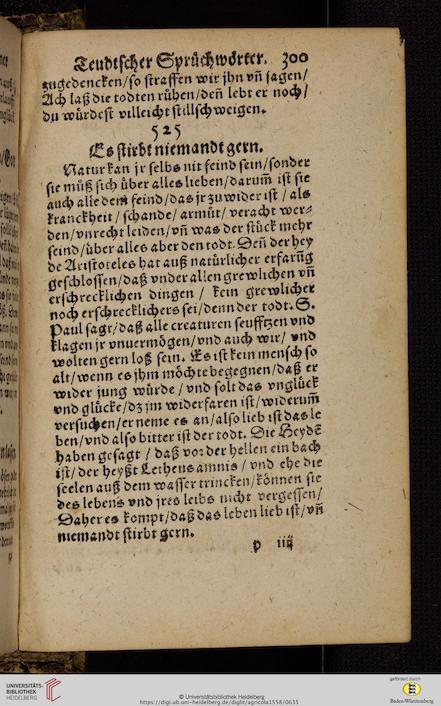 Teudtscher Sprüchwörter. 300
zugedencken/so straffen wir jhn vñ sagen/
Ach laß die todten rühen/deñ lebt er noch/
du würdest villeicht stillschweigen.
525
Es stirbt niemandt gern.
Natur kan jr selbs nit feind sein/sonder
sie müß sich über alles lieben/darum̃ ist sie
auch alle dem feind/das jr zuwider ist / als
kranckheit / schande/ armüt/ veracht wer-
den/vnrecht leiden/vñ was der stück mehr
seind/über alles aber den todt. Deñ der hey
de Aristoteles hat auß natürlicher erfarũg
geschlossen/daß vnder allen grewlichen vñ
erschrecklichen dingen / kein grewlicher
noch erschrecklichers sei/denn der todt. S.
Paul sagt/daß alle creaturen seufftzen vnd
klagen jr vnuermögen/vnd auch wir/ vnd
wolten gern loß sein. Es ist kein mensch so
alt/wenn es jhm möchte begegnen/daß er
wider jung würde / vnd solt das vnglück
vnd glücke/dz jm widerfaren ist/widerum̃
versuchen/er neme es an/also lieb ist das le
ben/vnd also bitter ist der todt. Die Heydẽ
haben gesagt / daß vor der hellen ein bach
ist/ der heyßt Letheus amnis / vnd ehe die
seelen auß dem wasser trincken/können sie
des lebens vnd jres leibs nicht vergessen/
Daher es kompt/daß das leben lieb ist/vñ
niemandt stirbt gern.
p iiij
UNIVERSITÄTS-
BIBLIOTHEK
HEIDELBERG
© Universitätsbibliothek Heidelberg
https://digi.ub.uni-heidelberg.de/diglit/agricola1558/0635
gefördert durch
Baden-Württemberg